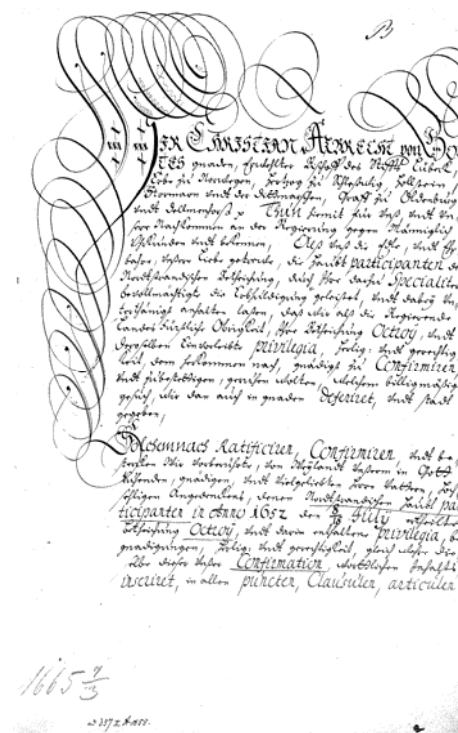 B
WIR CHRISTIAN ALBRECHT von GO
TES gnaden, Erwehlter Bischoff des Stiffts Lübeck,
Erbe zu Norwegen, Hertzog zu Schleßwig, Hollstein,
Stormarn undt der Dittmarschen, Graff zu Oldenburg
undt Dellmenhorst p Thun hiemit für Unß, undt Un,
sere Nachkommen an der Regierung gegen Männiglich
Uhrkunden undt bekennen, Daß Unß die
bahre, Unßere liebe getreüe, die Haubt participanten de
Nordtstrandischen Bedeichung, durch Ihre darzu Specialiter
bevollmächtigte die Erbhuldigung geleistet, undt dabey Un,
terthänigst anhalten laßen, daß wir alß die Regierende
Landes Fürstliche Obrigkeit, Ihre Bedeichung Octroy, undt
derselben Einverleibte privilegia, Frey: undt gerechtig
keit, dem herkommen nach, gnädigst zu Confirmiren,
undt zubestettigen, geruhen wolten, welchem billigmäßig
gesuch, wir dan auch in gnaden deferiret, undt stadt
gegeben,
Diesemnach Ratificiren, Confirmiren, undt be
stercken Wir vorberührte, von Weylandt Unßerm in Gott
Ruhenden, gnädigen, undt Vielgeliebten Herr Vattern, Hoch
sehligen Angedenckens, denen Nordtstrandischen Haubt par
ticipanten in Anno 1652 den 8/18 July ertheilte
Bedeichung Octroy, undt darin enthaltene privilegia, b
gnadigungen, Frey: undt gerechtigkeit, gleich ob
dieser Unßer Confirmation, wörtlichen Inhalts
inseriret, in allen puncten, Clausulen, articulen
1665 7/3